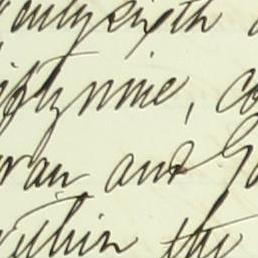 twenty sixth
fifty nine, co
ran and
within the